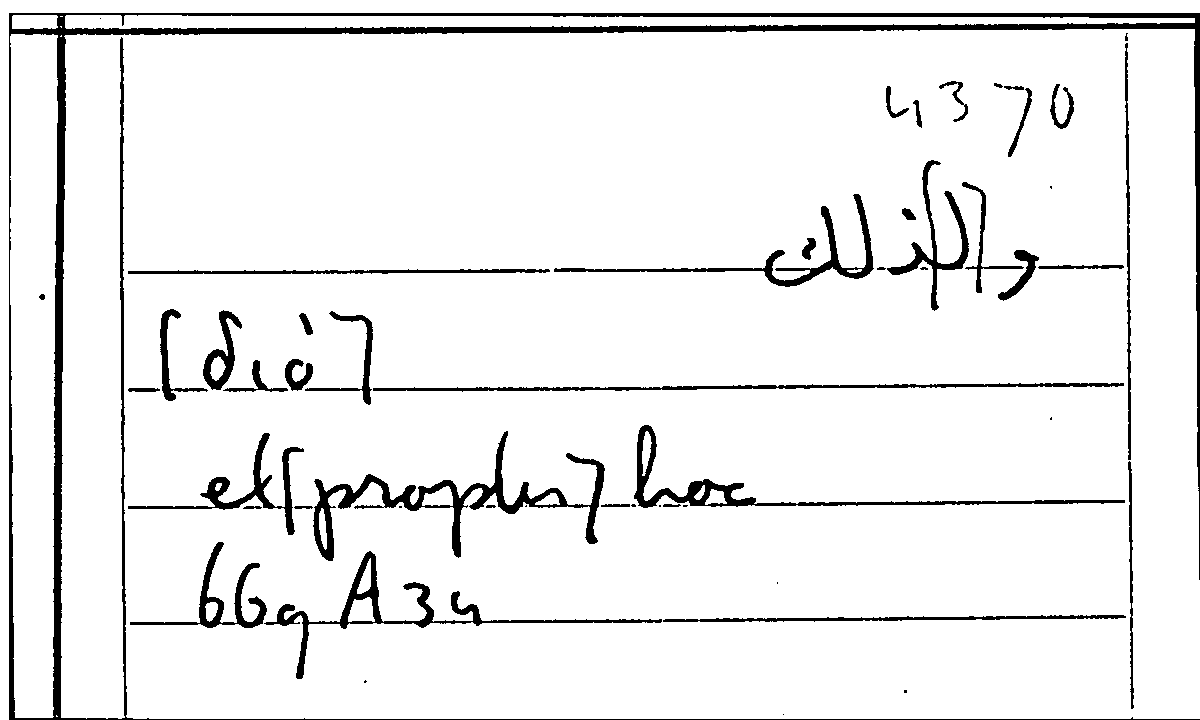 4370
و[ل]ذلك
[διό]
et [propter] hoc
669 A 34